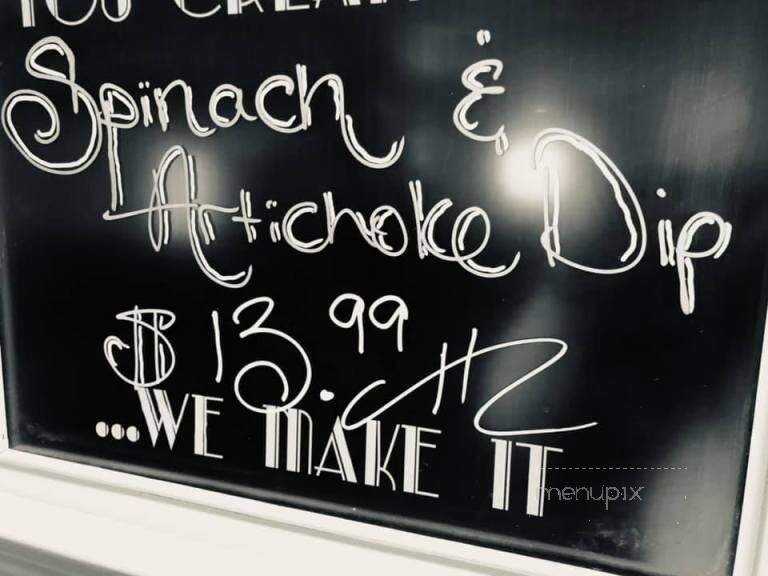 Spinach &
Artichoke Dip
$13.99
...WE MAKE IT
menupix